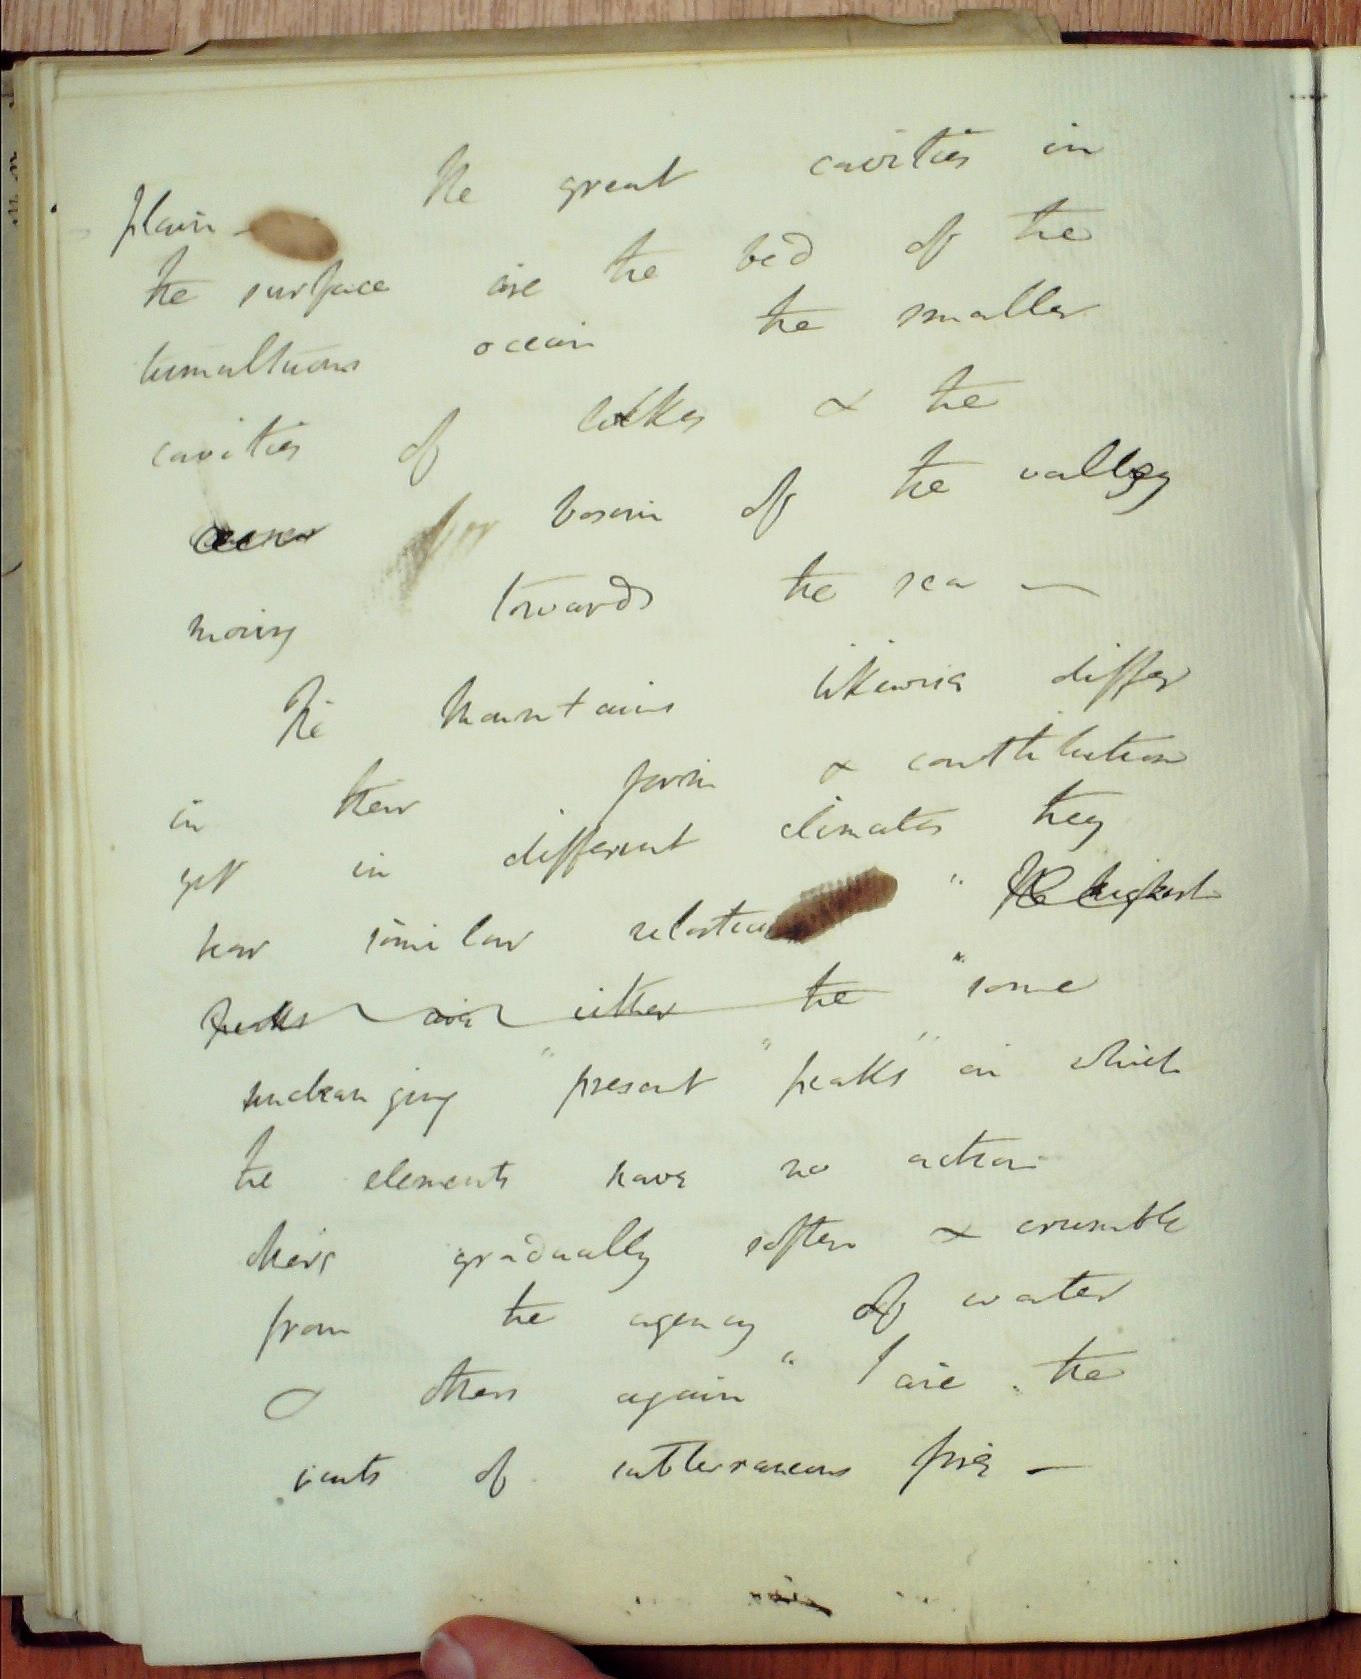 plain – the great cavities in
the surface are the bed of the
tumultuous ocean the smaller
cavities of lakes & the
bosom of the valley
moving towards the sea —
The Mountains likewise differ
in their form & constitution
yet in different climates they
have similar relations " The highest
peaks are either the "some
unchanging "present "peaks" on which
the elements have no action
others gradually soften & crumble
from the agency of water
& others again " are the
vents of subterraneous fire —